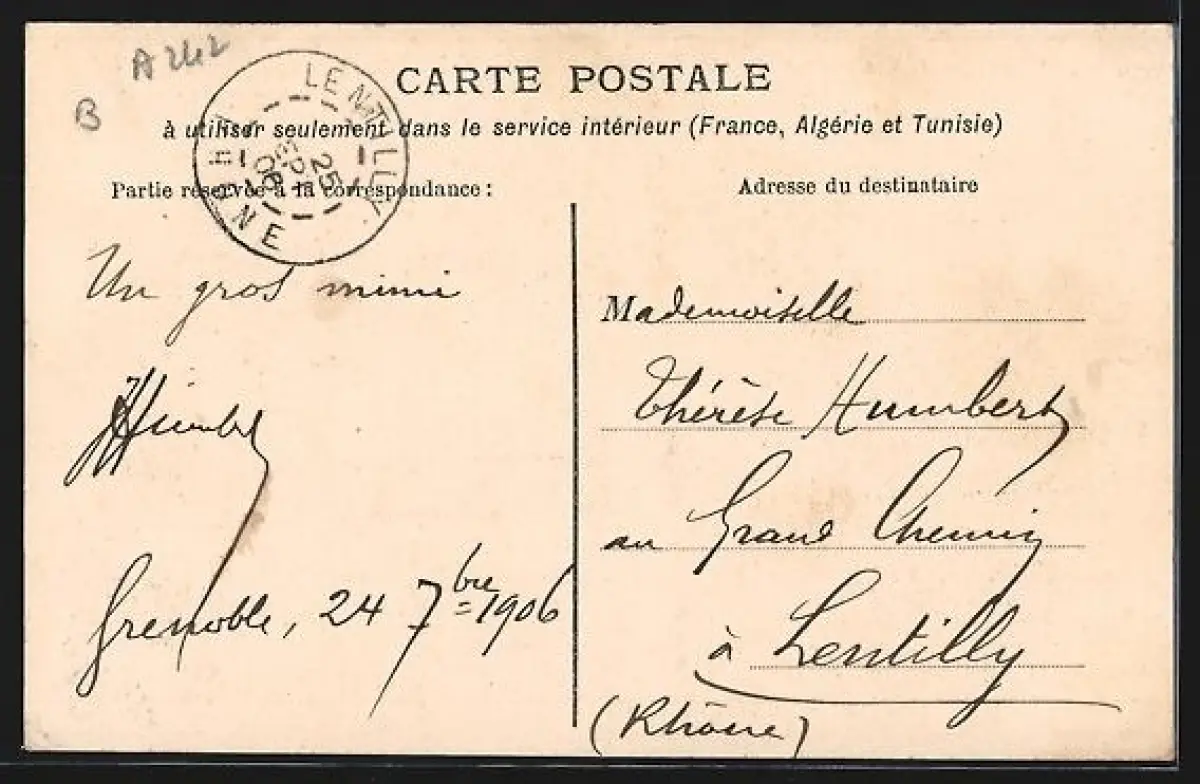 A 242
B
CARTE POSTALE
à utiliser seulement dans le service intérieur (France, Algérie et Tunisie)
LENTILLY
25
SEPT
06
RHONE
Partie réservée à la correspondance :
Adresse du destinataire
Un gros mimi
Grenoble, 24 7bre 1906
Mademoiselle
Thérèse Humbert
au Grand Chemin
à Lentilly
(Rhône)